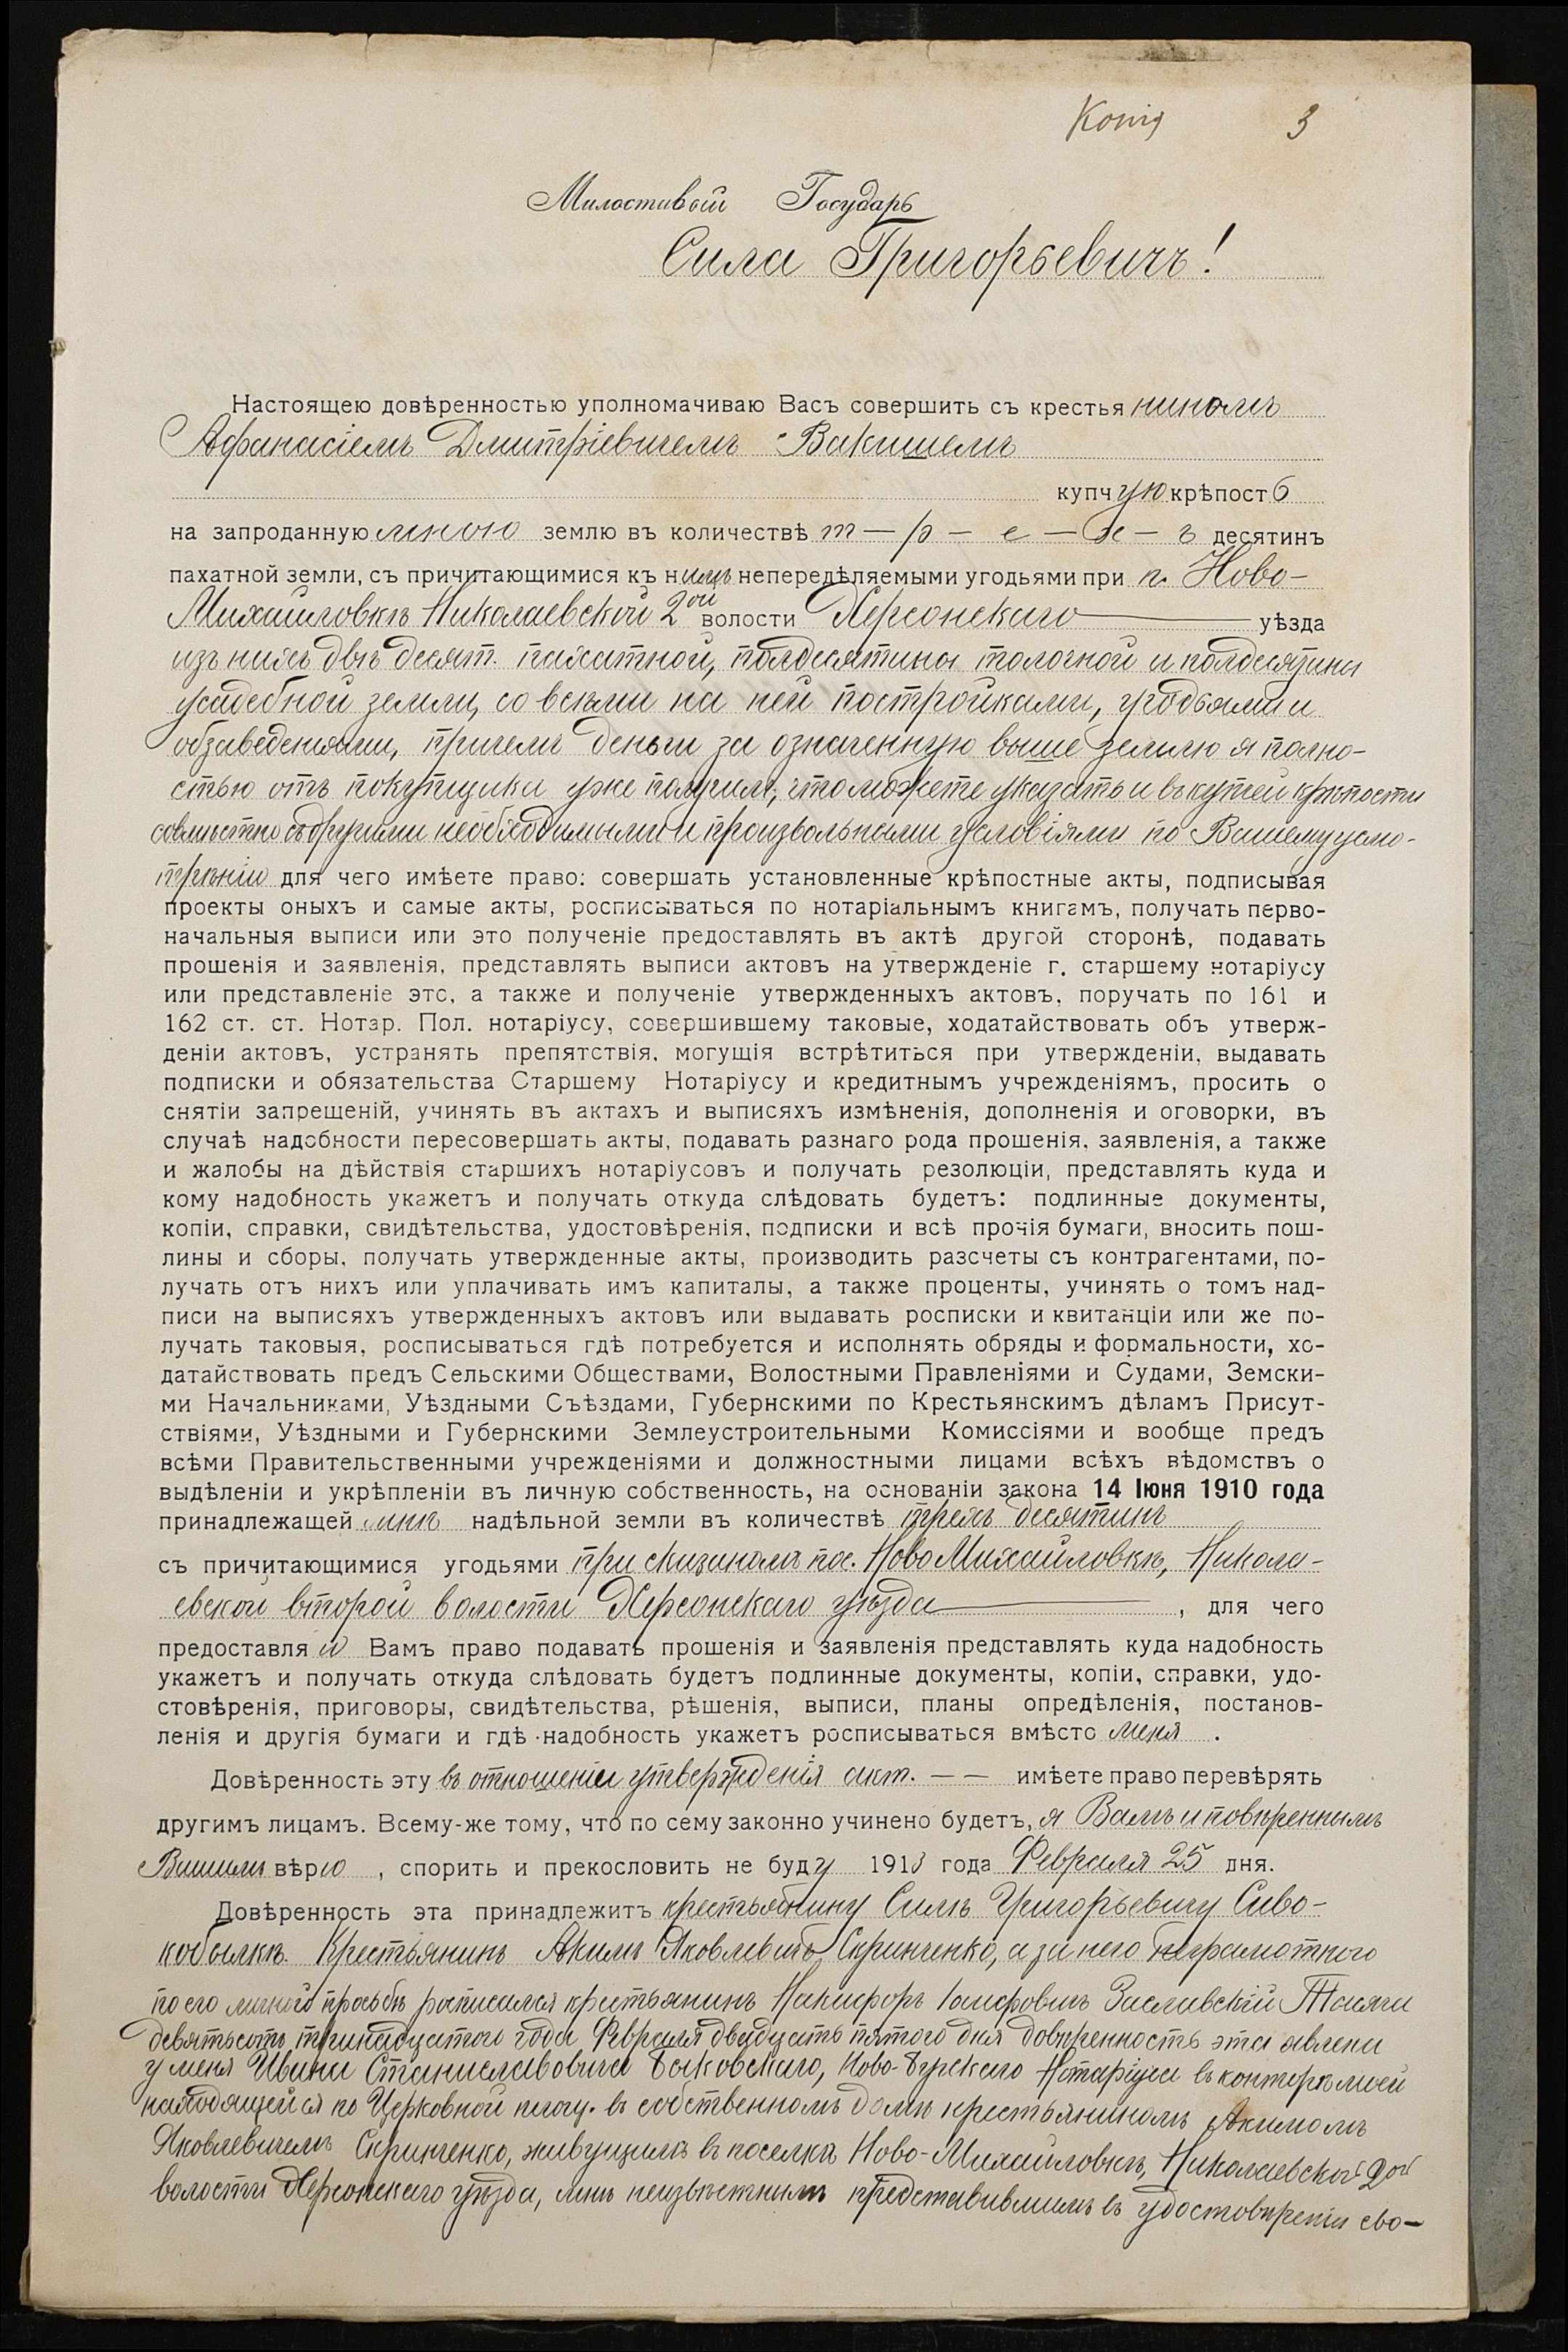 Копія 3
Милостивый Государь
Сила Григорьевичъ!
Настоящею довѣренностью уполномачиваю Васъ совершить съ крестья ниномъ
Афанасіемъ Дмитріевичемъ Вакишемъ
купч ую крѣпост ь
на запроданную мною землю въ количествѣ т — р — е — х — ъ десятинъ
пахатной земли, съ причитающимися къ нимъ непередѣляемыми угодьями при п. Ново-
Михайловкѣ Николаевской 2ой волости Херсонскаго уѣзда
изъ нихъ двѣ десят. пахатной, полдесятины толочной и полдесятины
усадебной земли, со всѣми на ней постройками, угодьями и
обзаведеніями, причемъ деньги за означенную выше землю я полно-
стью отъ покупщика уже получилъ, что можете указать и въ купчей крѣпости
совмѣстно съ другими необходимыми и произвольными условіями по Вашему усмо-
трѣнію для чего имѣете право: совершать установленные крѣпостные акты, подписывая
проекты оныхъ и самые акты, росписываться по нотаріальнымъ книгамъ, получать перво-
начальныя выписи или это полученіе предоставлять въ актѣ другой сторонѣ, подавать
прошенія и заявленія, представлять выписи актовъ на утвержденіе г. старшему нотаріусу
или представленіе это, а также и полученіе утвержденныхъ актовъ, поручать по 161 и
162 ст. ст. Нотар. Пол. нотаріусу, совершившему таковые, ходатайствовать объ утверж-
деніи актовъ, устранять препятствія, могущія встрѣтиться при утвержденіи, выдавать
подписки и обязательства Старшему Нотаріусу и кредитнымъ учрежденіямъ, просить о
снятіи запрещеній, учинять въ актахъ и выписяхъ измѣненія, дополненія и оговорки, въ
случаѣ надобности пересовершать акты, подавать разнаго рода прошенія, заявленія, а также
и жалобы на дѣйствія старшихъ нотаріусовъ и получать резолюціи, представлять куда и
кому надобность укажетъ и получать откуда слѣдовать будетъ: подлинные документы,
копіи, справки, свидѣтельства, удостовѣренія, подписки и всѣ прочія бумаги, вносить пош-
лины и сборы, получать утвержденные акты, производить разсчеты съ контрагентами, по-
лучать отъ нихъ или уплачивать имъ капиталы, а также проценты, учинять о томъ над-
писи на выписяхъ утвержденныхъ актовъ или выдавать росписки и квитанціи или же по-
лучать таковыя, росписываться гдѣ потребуется и исполнять обряды и формальности, хо-
датайствовать предъ Сельскими Обществами, Волостными Правленіями и Судами, Земски-
ми Начальниками, Уѣздными Съѣздами, Губернскими по Крестьянскимъ дѣламъ Присут-
ствіями, Уѣздными и Губернскими Землеустроительными Комиссіями и вообще предъ
всѣми Правительственными учрежденіями и должностными лицами всѣхъ вѣдомствъ о
выдѣленіи и укрѣпленіи въ личную собственность, на основаніи закона 14 Іюня 1910 года
принадлежащей мнѣ надѣльной земли въ количествѣ трехъ десятинъ
съ причитающимися угодьями при сказаномъ пос. Ново Михайловкѣ, Никола-
евской второй волости Херсонскаго уѣзда, для чего
предоставля ю Вамъ право подавать прошенія и заявленія представлять куда надобность
укажетъ и получать откуда слѣдовать будетъ подлинные документы, копіи, справки, удо-
стовѣренія, приговоры, свидѣтельства, рѣшенія, выписи, планы опредѣленія, постанов-
ленія и другія бумаги и гдѣ надобность укажетъ росписываться вмѣсто меня .
Довѣренность эту въ отношеніи утвержденія акт. — — имѣете право перевѣрять
другимъ лицамъ. Всему-же тому, что по сему законно учинено будетъ, я Вамъ и повѣреннымъ
Вашимъ вѣрю , спорить и прекословить не буду 1913 года Февраля 25 дня.
Довѣренность эта принадлежитъ крестьянину Силѣ Григорьевичу Сиво-
кобылкѣ. Крестьянинъ Акимъ Яковлевичъ Скринченко, а за него неграмотного
по его личной просьбѣ росписался крестьянинъ Никифоръ Заславскій Тысяча
девятьсотъ тринадцатого года Февраля двадцать пятого дня довѣренность эта явлена
у меня Ивана Станиславовича Быковскаго, Ново-Бугскаго Нотаріуса въ конторѣ моей
находящейся по Церковной площ. въ собственномъ домѣ крестьяниномъ Акимомъ
Яковлевичемъ Скринченко, живущимъ въ поселкѣ Ново-Михайловкѣ, Николаевской 2ой
волости Херсонскаго уѣзда, мнѣ неизвѣстнымъ представившимъ въ удостовѣреніи сво-